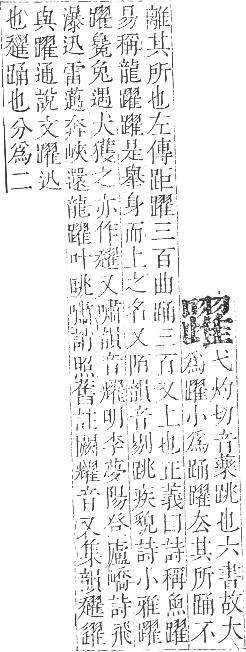 躍弋灼切音藥跳也六書故大
爲躍小爲踊躍去其所踊不
離其所也左傳距躍三百曲踊三百又上也正義曰詩稱魚躍
易稱龍躍躍是舉身而上之名又陌韻音剔跳疾貌詩小雅躍
躍毚兔遇犬獲之亦作趯又嘯韻音耀明李夢陽登廬嶠詩飛
瀑迅雷薦奔峽還龍躍叶眺嘯誚照舊註闕耀音又集韻趯䟑
與躍通說文躍迅
也趯踊也分爲二